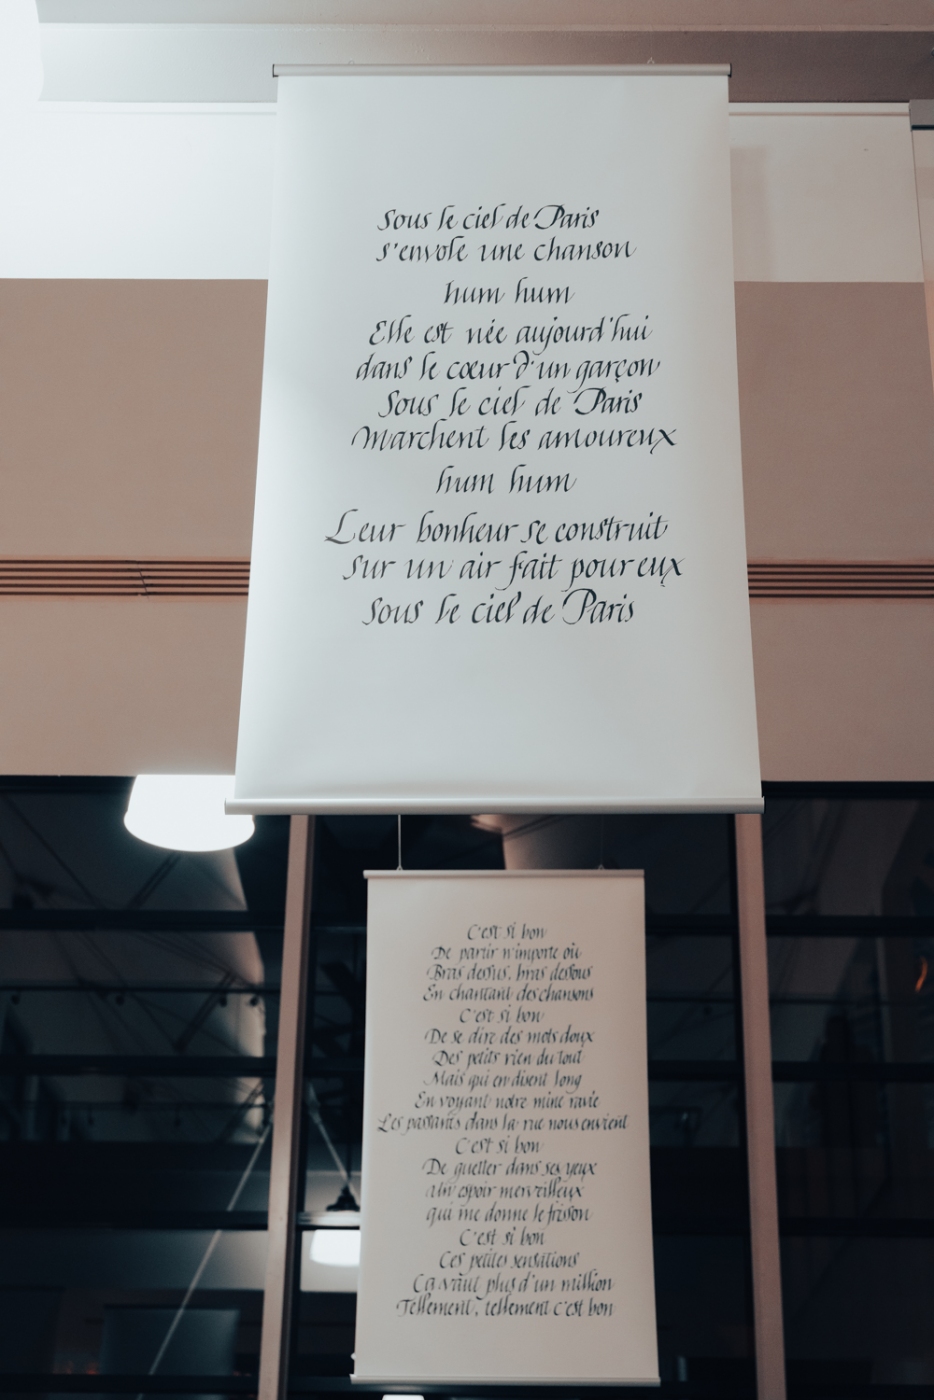 Sous le ciel de Paris
s'envole une chanson
hum hum
Elle est née aujourd'hui
dans le cœur d'un garçon
Sous le ciel de Paris
Marchent les amoureux
hum hum
Leur bonheur se construit
Sur un air fait pour eux
Sous le ciel de Paris
C'est si bon
De partir n'importe où
Bras dessus, bras dessous
En chantant des chansons
C'est si bon
De se dire des mots doux
Des petits rien du tout
Mais qui en disent long
En voyant notre mine ravie
Les passants dans la rue nous envient
C'est si bon
De guetter dans ses yeux
Un espoir merveilleux
qui me donne le frisson
C'est si bon
Ces petites sensations
Ça vaut plus d'un million
Tellement, tellement c'est bon